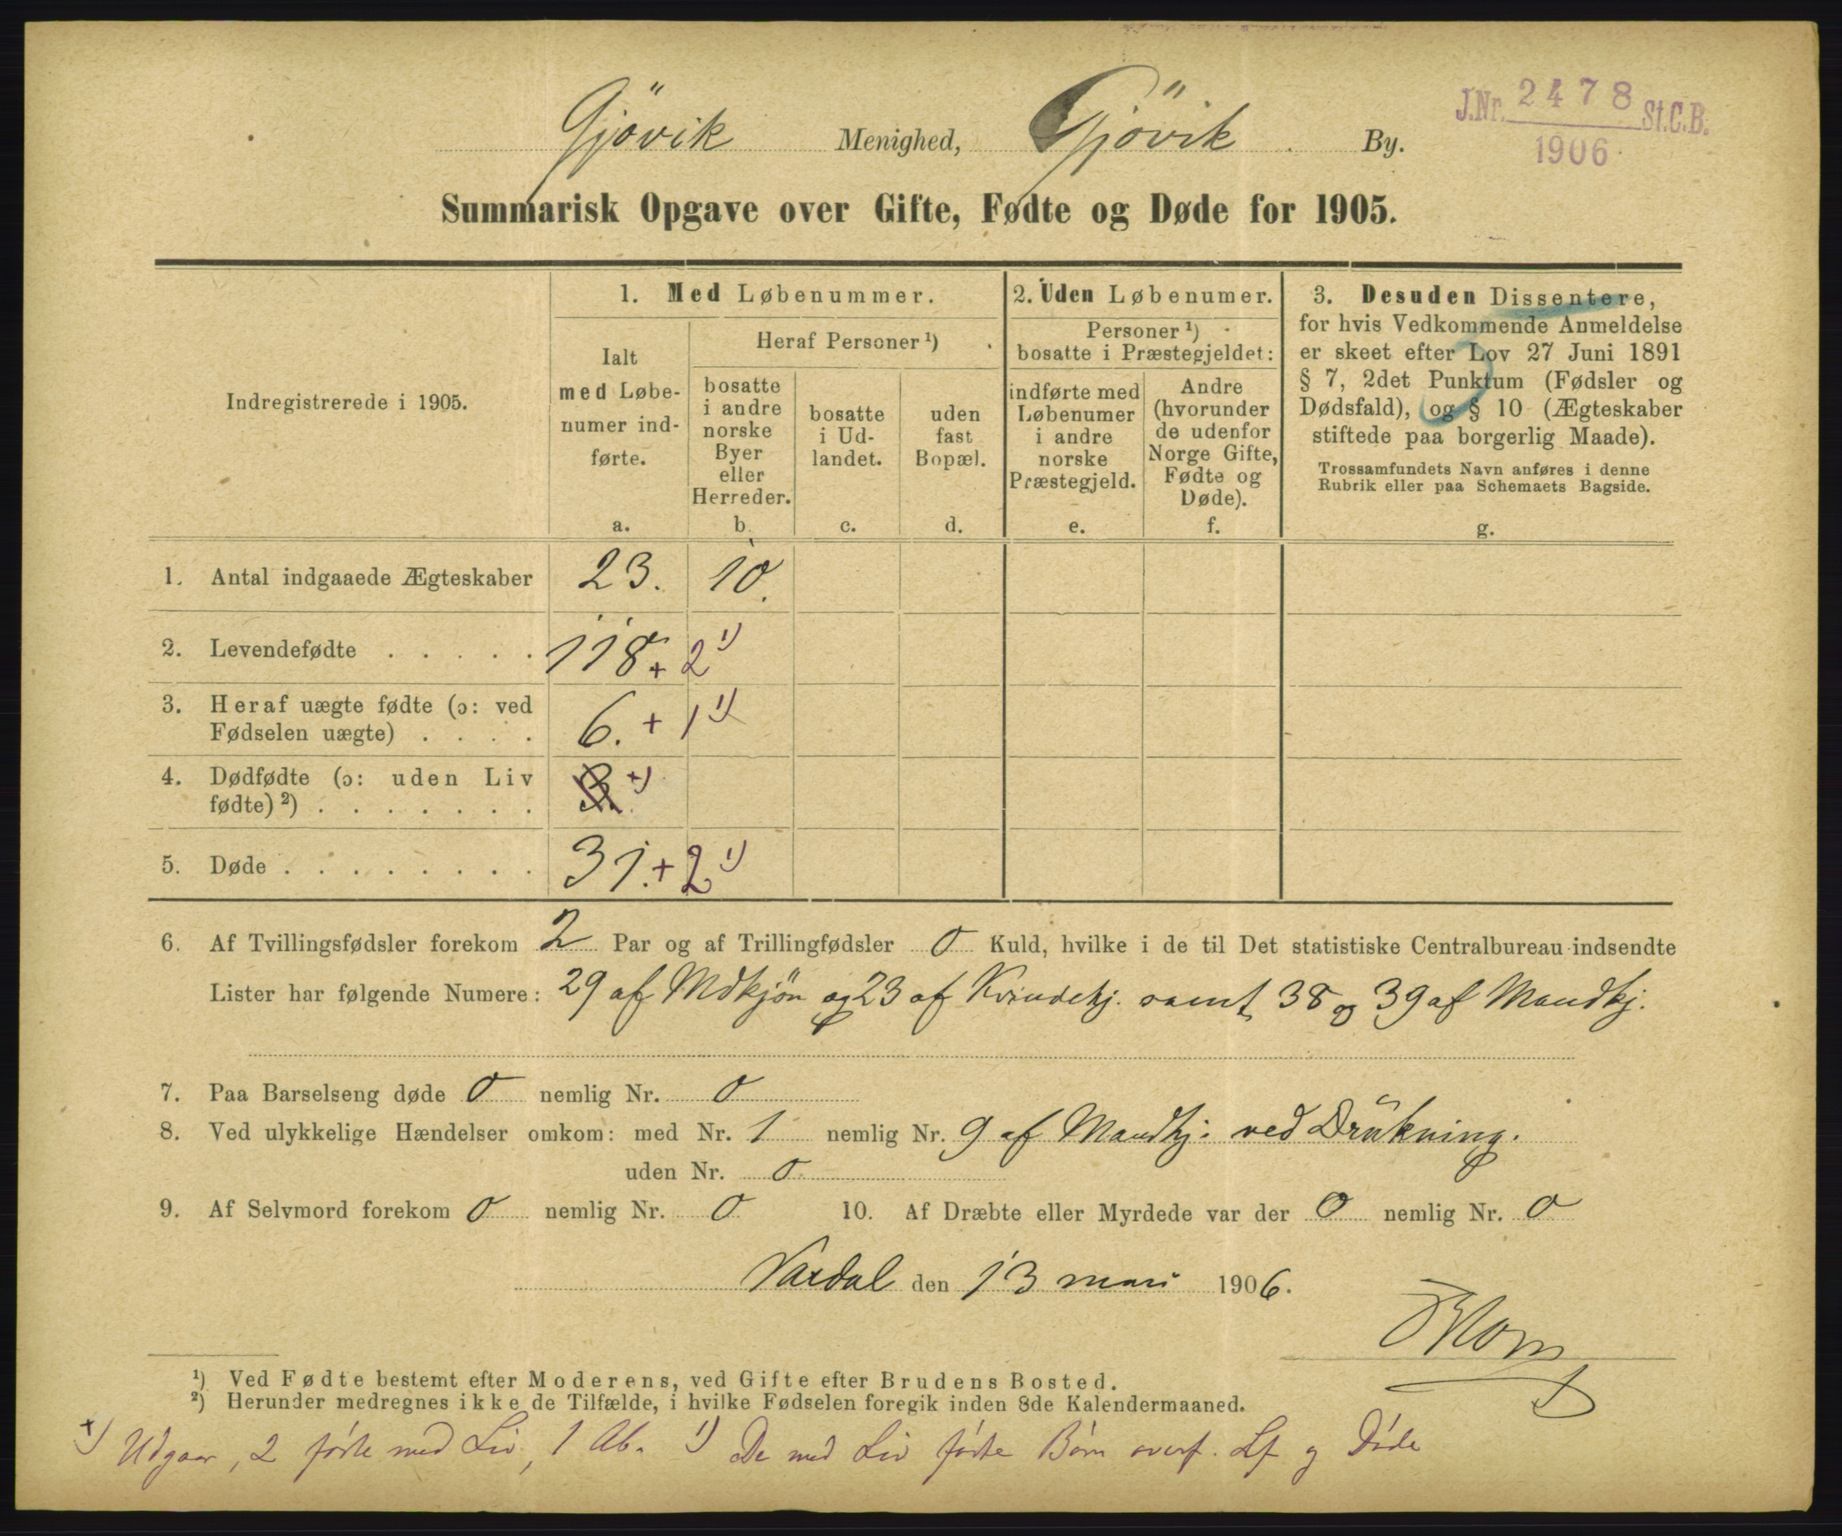 Gjövik Menighed, Gjövik By.
J.Nr. 2478 St.C.B.
1906
Summarisk Opgave over Gifte, Fødte og Døde for 1905.
Indregistrerede i 1905.
1. Med Løbenummer.
Ialt
med Løbe-
numer ind-
førte.
a.
Heraf Personer ¹)
bosatte
i andre
norske
Byer
eller
Herreder.
b.
bosatte
i Ud-
landet.
c.
uden
fast
Bopæl.
d.
2. Uden Løbenumer.
Personer ¹)
bosatte i Præstegjeldet:
indførte med
Løbenumer
i andre
norske
Præstegjeld.
e.
Andre
(hvorunder
de udenfor
Norge Gifte,
Fødte og
Døde).
f.
3. Desuden Dissentere,
for hvis Vedkommende Anmeldelse
er skeet efter Lov 27 Juni 1891
§ 7, 2det Punktum (Fødsler og
Dødsfald), og § 10 (Ægteskaber
stiftede paa borgerlig Maade).
Trossamfundets Navn anføres i denne
Rubrik eller paa Schemaets Bagside.
g.
1. Antal indgaaede Ægteskaber 23. 10.
2. Levendefødte . . . . . 118 + 2 ¹)
3. Heraf uægte fødte (ɔ: ved
Fødselen uægte) . . . . 6. + 1 ¹)
4. Dødfødte (ɔ: uden Liv
fødte) ²) . . . . . . . 3. +)
5. Døde . . . . . . . . 31. + 2 ¹)
6. Af Tvillingsfødsler forekom 2 Par og af Trillingfødsler 0 Kuld, hvilke i de til Det statistiske Centralbureau indsendte
Lister har følgende Numere: 29 af Mdkjön og 23 af Kvindekj. samt 38 og 39 af Mandkj.
7. Paa Barselseng døde 0 nemlig Nr. 0
8. Ved ulykkelige Hændelser omkom: med Nr. 1 nemlig Nr. 9 af Mandkj. ved Drukning.
uden Nr. 0
9. Af Selvmord forekom 0 nemlig Nr. 0 10. Af Dræbte eller Myrdede var der 0 nemlig Nr. 0
Vardal den 13 mars 1906.
Blom
¹) Ved Fødte bestemt efter Moderens, ved Gifte efter Brudens Bosted.
²) Herunder medregnes ikke de Tilfælde, i hvilke Fødselen foregik inden 8de Kalendermaaned.
+) Udgaar, 2 førte med Liv, 1 Ab. ¹) De med Liv fødte Børn overf. Lf og Døde